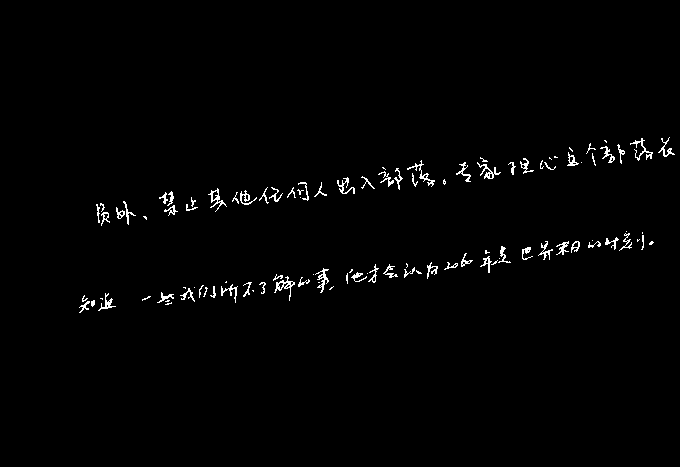 员外、禁止其他任何人出入部落。专家担心这个部落衣
知道 一些我们所不了解的事,他才会认为2060年是世界末日的时刻。